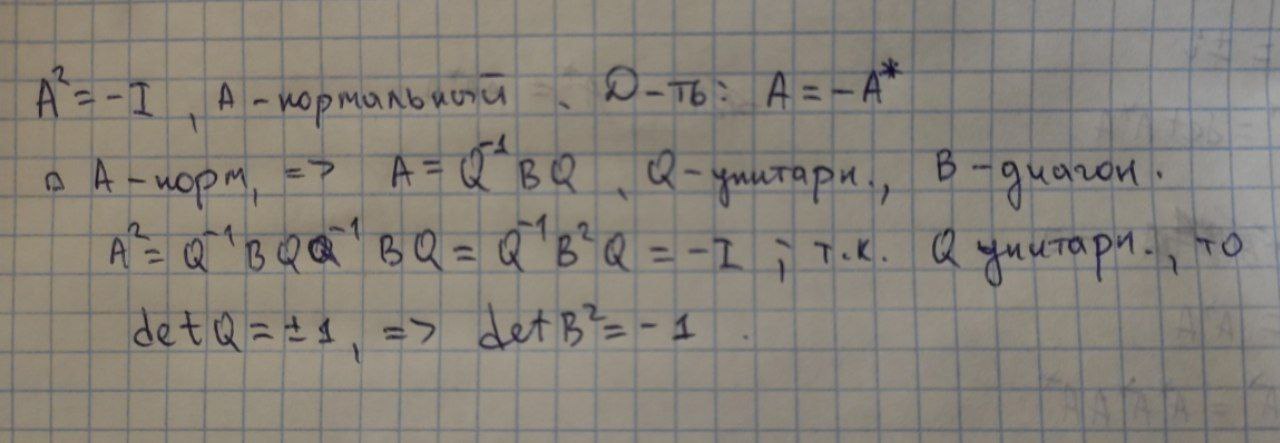 A² = -I, A - нормальный. Д-ть: A = -A*
▫ A - норм, => A = Q⁻¹BQ, Q - унитарн., B - диагон.
A² = Q⁻¹BQQ⁻¹BQ = Q⁻¹B²Q = -I; т.к. Q унитарн., то
det Q = ±1, => det B² = -1.